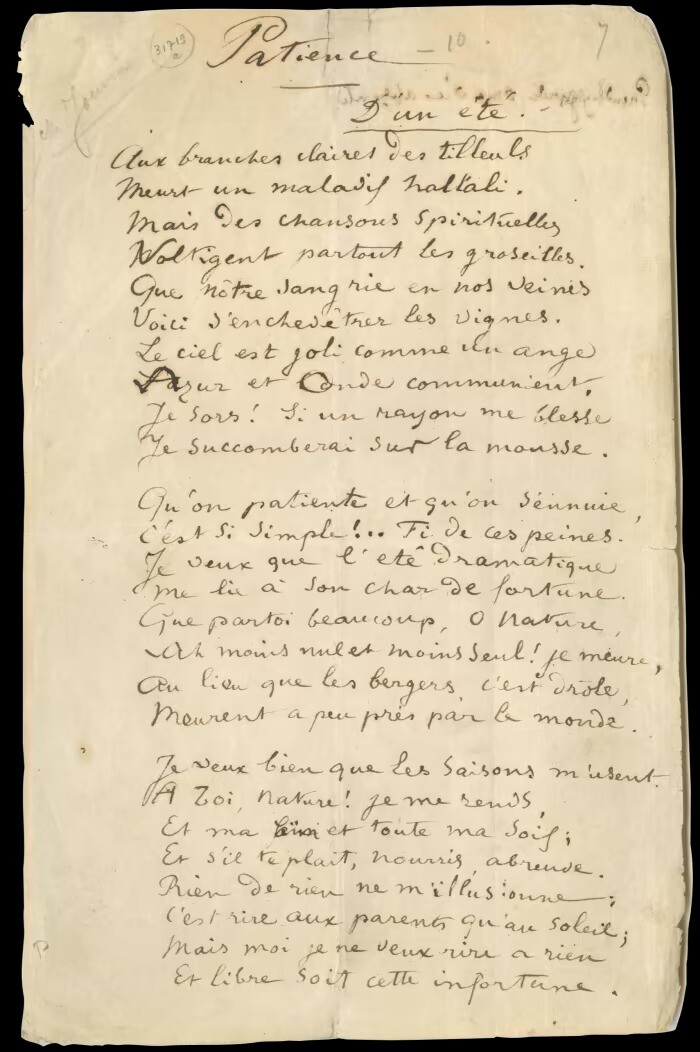 31719
a
Patience — 10 .
7
D'un été. -
Aux branches claires des tilleuls
Meurt un maladif hallali.
Mais des chansons spirituelles
Voltigent partout les groseilles.
Que nôtre sang rie en nos veines
Voici s'enchevêtrer les vignes.
Le ciel est joli comme un ange
Azur et Onde communient,
Je sors! Si un rayon me blesse
Je succomberai sur la mousse.
Qu'on patiente et qu'on s'ennuie,
C'est si simple!.. Fi de ces peines.
Je veux que l'été dramatique
Me lie à son char de fortune.
Que par toi beaucoup, O Nature,
Ah moins nul et moins seul! je meure,
Au lieu que les bergers, c'est drôle,
Meurent a peu près par le monde.
Je veux bien que les saisons m'usent.
A Toi, Nature! je me rends,
Et ma faim et toute ma soif;
Et s'il te plait, nourris, abreuve.
Rien de rien ne m'illusionne;
C'est rire aux parents qu'au soleil;
Mais moi je ne veux rire a rien
Et libre soit cette infortune.